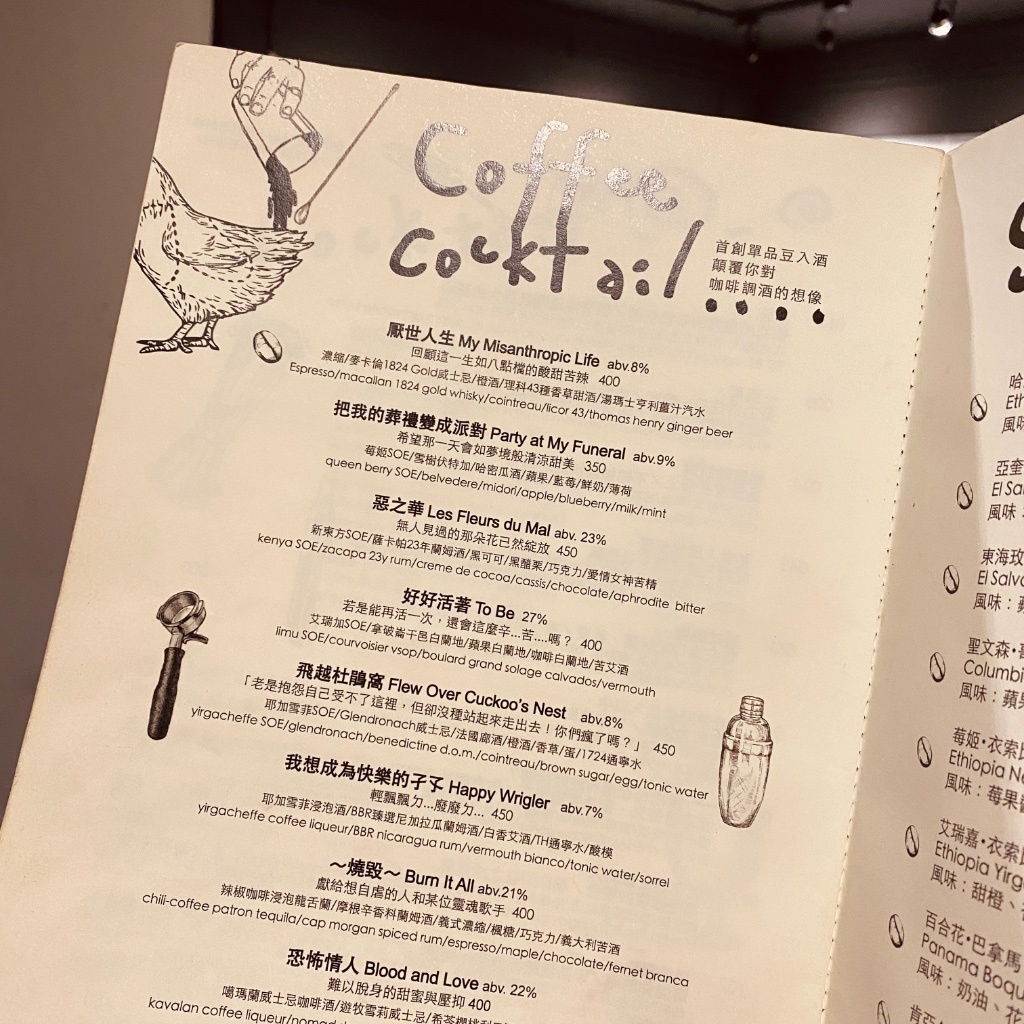 Coffee
Cocktail....
首創單品豆入酒
顛覆你對
咖啡調酒的想像
厭世人生 My Misanthropic Life abv.8%
回顧這一生如八點檔的酸甜苦辣 400
濃縮/麥卡倫1824 Gold威士忌/橙酒/理科43種香草甜酒/湯瑪士亨利薑汁汽水
Espresso/macallan 1824 gold whisky/cointreau/licor 43/thomas henry ginger beer
把我的葬禮變成派對 Party at My Funeral abv.9%
希望那一天會如夢境般清涼甜美 350
莓姬SOE/雪樹伏特加/哈密瓜酒/蘋果/藍莓/鮮奶/薄荷
queen berry SOE/belvedere/midori/apple/blueberry/milk/mint
惡之華 Les Fleurs du Mal abv. 23%
無人見過的那朵花已然綻放 450
新東方SOE/薩卡帕23年蘭姆酒/黑可可/黑醋栗/巧克力/愛情女神苦精
kenya SOE/zacapa 23y rum/creme de cocoa/cassis/chocolate/aphrodite bitter
好好活著 To Be 27%
若是能再活一次，還會這麼辛...苦....嗎？ 400
艾瑞加SOE/拿破崙干邑白蘭地/蘋果白蘭地/咖啡白蘭地/苦艾酒
limu SOE/courvoisier vsop/boulard grand solage calvados/vermouth
飛越杜鵑窩 Flew Over Cuckoo's Nest abv.8%
「老是抱怨自己受不了這裡，但卻沒種站起來走出去！你們瘋了嗎？」 450
耶加雪菲SOE/Glendronach威士忌/法國廊酒/橙酒/香草/蛋/1724通寧水
yirgacheffe SOE/glendronach/benedictine d.o.m./cointreau/brown sugar/egg/tonic water
我想成為快樂的孑孓 Happy Wrigler abv.7%
輕飄飄ㄉ...廢廢ㄉ... 450
耶加雪菲浸泡酒/BBR臻選尼加拉瓜蘭姆酒/白香艾酒/TH通寧水/酸模
yirgacheffe coffee liqueur/BBR nicaragua rum/vermouth bianco/tonic water/sorrel
～燒毀～ Burn It All abv.21%
獻給想自虐的人和某位靈魂歌手 400
辣椒咖啡浸泡龍舌蘭/摩根辛香料蘭姆酒/義式濃縮/楓糖/巧克力/義大利苦酒
chili-coffee patron tequila/cap morgan spiced rum/espresso/maple/chocolate/fernet branca
恐怖情人 Blood and Love abv. 22%
難以脫身的甜蜜與壓抑 400
噶瑪蘭威士忌咖啡酒/遊牧雪莉威士忌/希苓櫻桃利
kavalan coffee liqueur/nomad
哈
Eth
風味
亞奎
El Sal
風味：
東海玫
El Salva
風味：蘋
聖文森•
Columbi
風味：蘋果
莓姬•衣索比
Ethiopia Na
風味：莓果
艾瑞嘉•衣索
Ethiopia Yirg
風味：甜橙、
百合花•巴拿馬
Panama Boqu
風味：奶油、花
肯亞